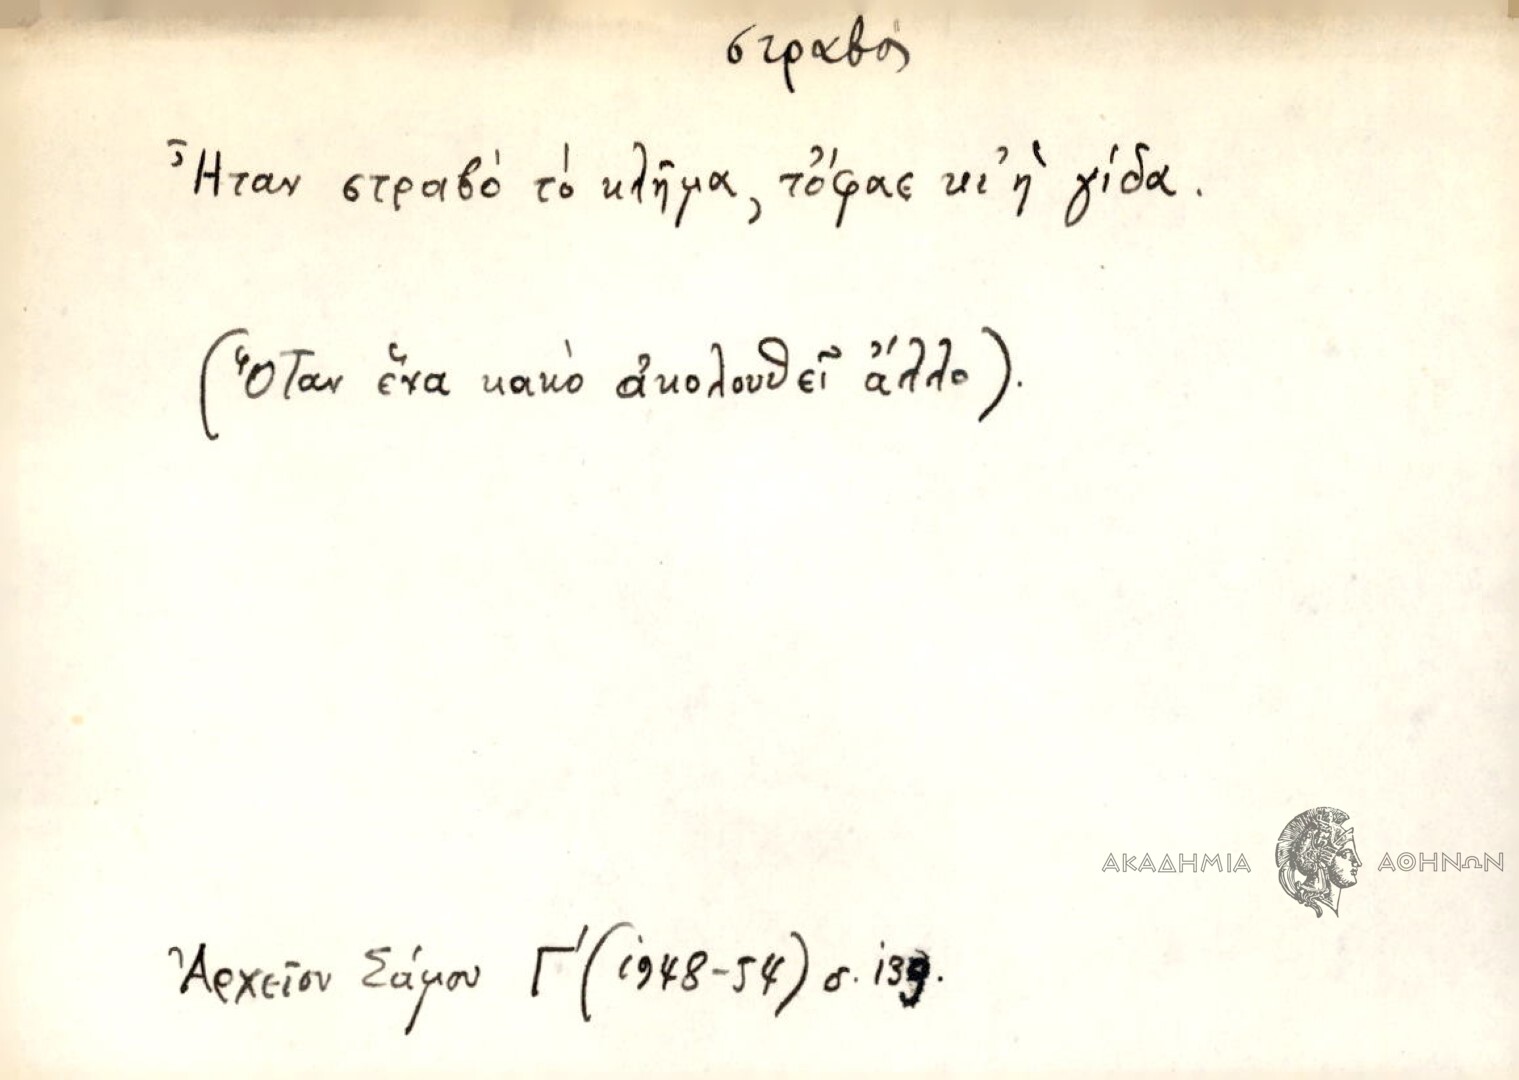 στραβός
Ἦταν στραβὸ τὸ κλῆμα, τὄφαε κι' ἡ γίδα.
(Ὅταν ἕνα κακὸ ἀκολουθεῖ ἄλλο).
ΑΚΑΔΗΜΙΑ ΑΘΗΝΩΝ
Ἀρχεῖον Σάμου Γ' (1948-54) σ. 139.